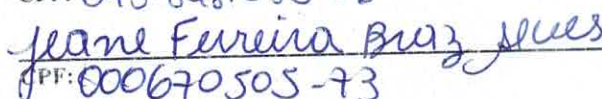 Jeane Ferreira Braz Alves
CPF: 000670505-73